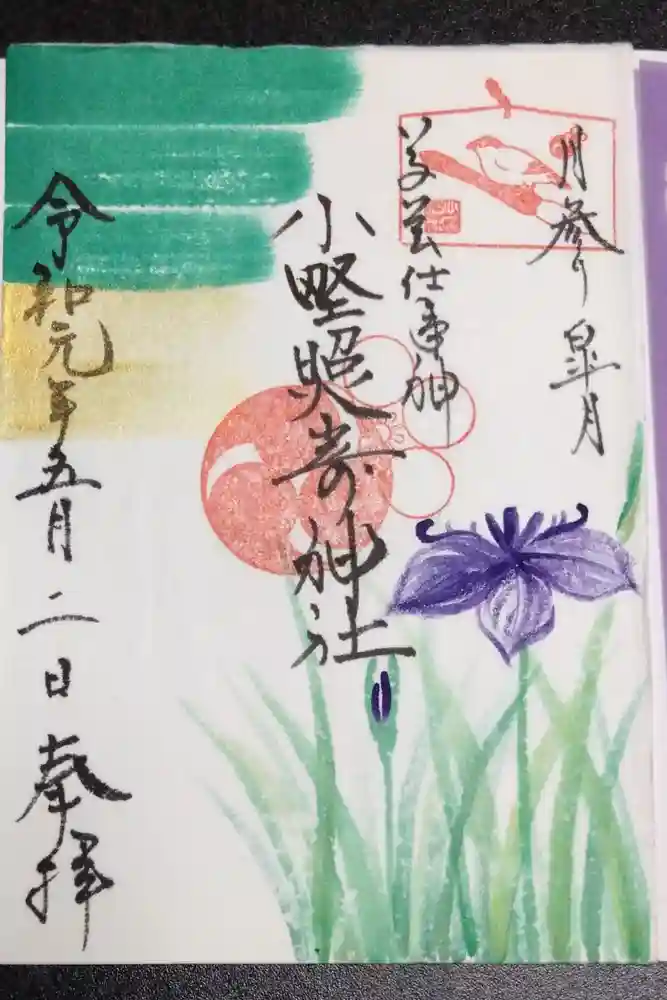 月参り 皐月
学芸仕事神
小野照崎神社
令和元年五月二日 奉拝